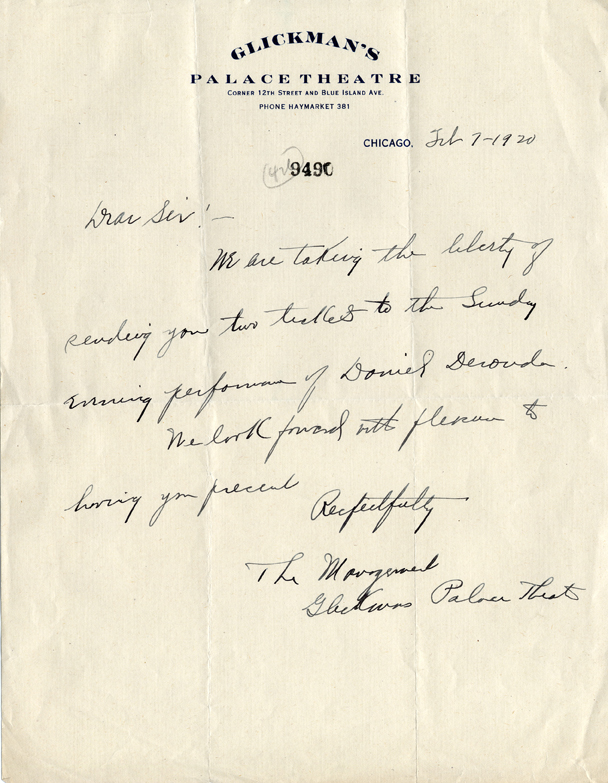 GLICKMAN'S
PALACE THEATRE
CORNER 12TH STREET AND BLUE ISLAND AVE.
PHONE HAYMARKET 381
CHICAGO, Feb 7-1920
9490
Dear Sir! —
We are taking the liberty of
sending you two tickets to the Sunday
evening performance of Daniel Deronda.
We look forward with pleasure to
having you present
Respectfully
The Management
Glickmans Palace Theat